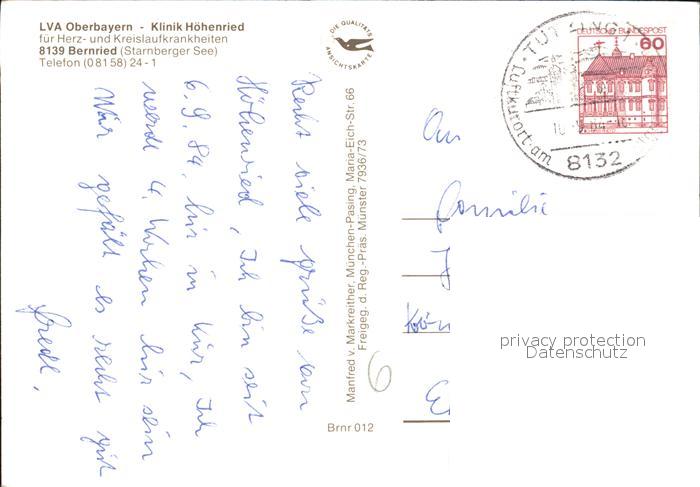 LVA Oberbayern - Klinik Höhenried
für Herz- und Kreislaufkrankheiten
8139 Bernried (Starnberger See)
Telefon (0 81 58) 24 - 1
DIE QUALITÄTS
ANSICHTSKARTE
TUTZING
Luftkurort am
8132
DEUTSCHE BUNDESPOST
60
Recht viele Grüße von
Höhenried, Ich bin seit
6.9.84. hir in Kur, Ich
werde 4. Wochen hir sein
Mir gefält es recht gut
Gredl,
Manfred v. Markreither, München-Pasing, Maria-Eich-Str. 66
Freigeg. d. Reg.-Präs. Münster 7936/73
Brnr 012
6
An
Familie
privacy protection
Datenschutz